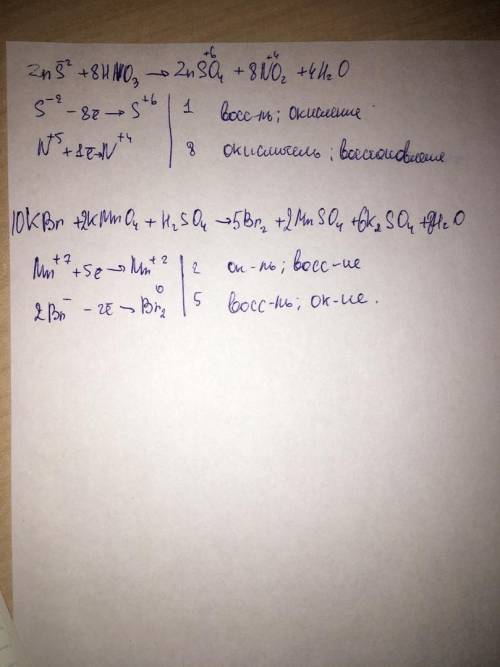 ZnS⁻² + 8HNO₃ → ZnS⁺⁶O₄ + 8N⁺⁴O₂ + 4H₂O
S⁻² - 8ē → S⁺⁶ | 1 восс-ль; окисление
N⁺⁵ + 1ē → N⁺⁴ | 8 окислитель; восстановление
10KBr + 2KMnO₄ + H₂SO₄ → 5Br₂ + 2MnSO₄ + 6K₂SO₄ + 8H₂O
Mn⁺⁷ + 5ē → Mn⁺² | 2 ок-ль; восс-ие
2Br⁻ - 2ē → Br₂⁰ | 5 восс-ль; ок-ие.